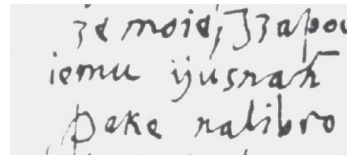 ze moie, J zapou
iemu ijusnah
peke nalibro